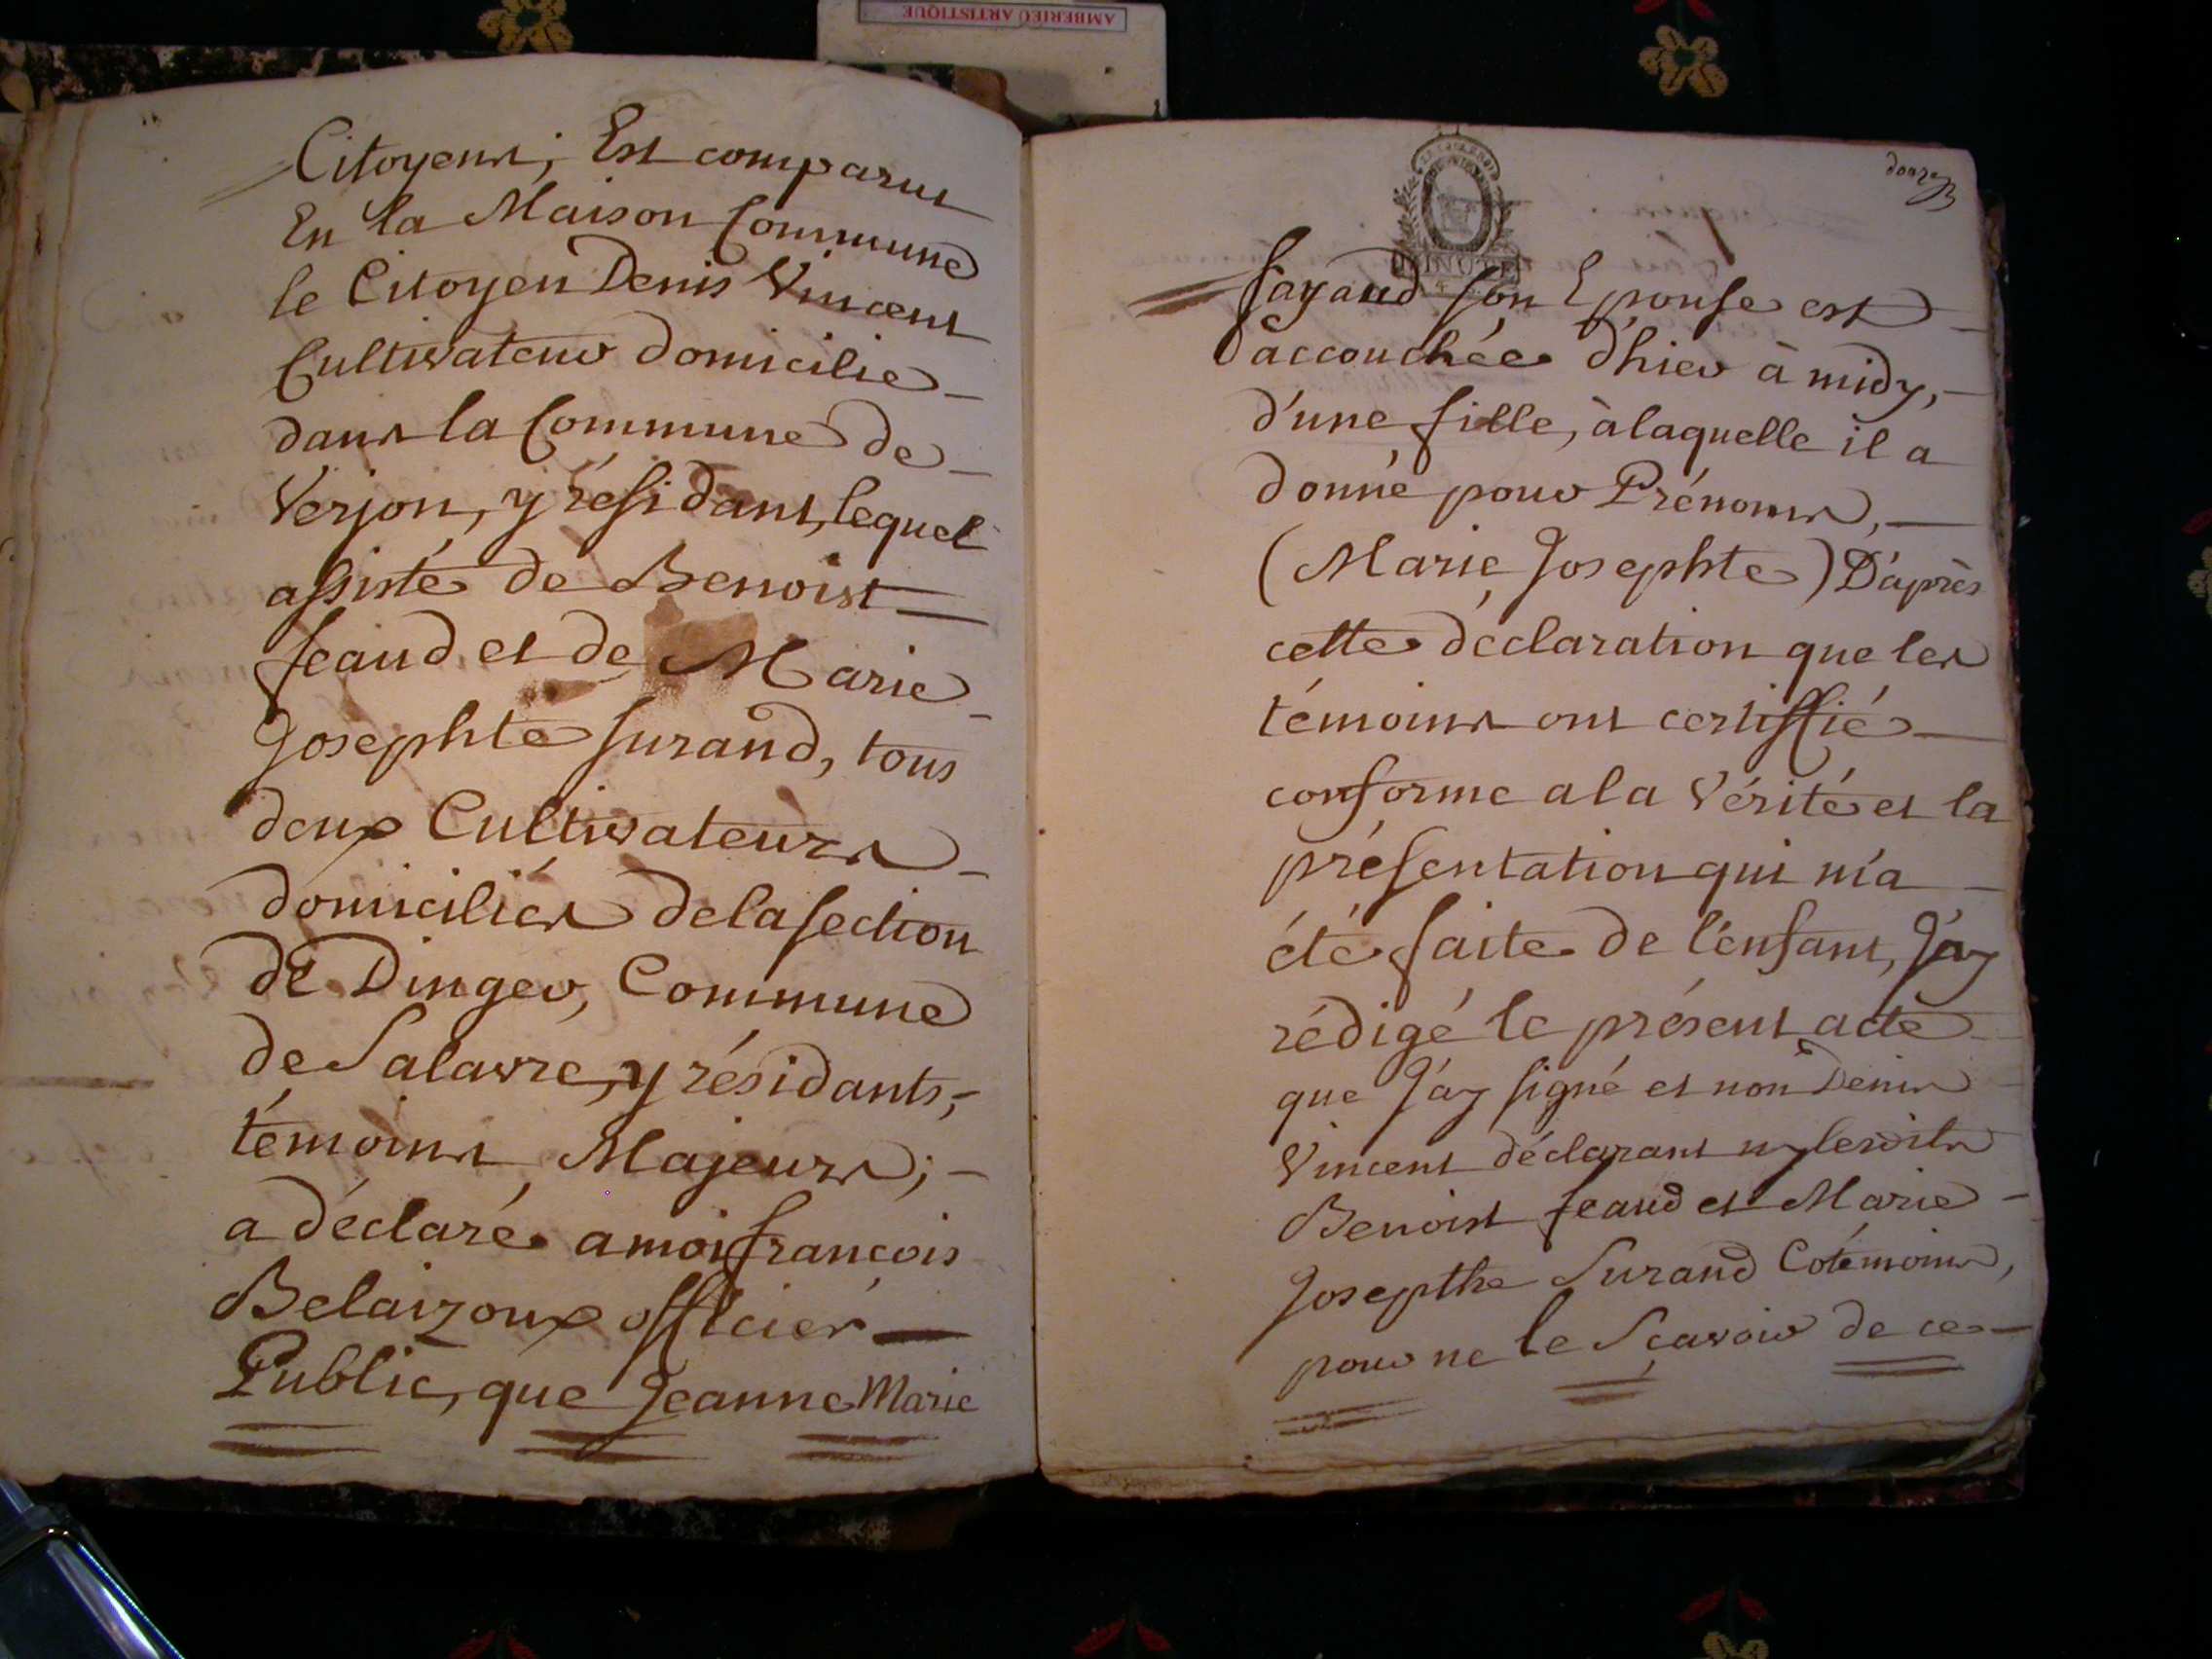 AMBERIEU ARTISTIQUE
Citoyens; Est comparut
En la Maison Commune
le Citoyen Denis Vincent
Cultivateur domicilié
dans la Commune de
Verjon, y résidant, lequel
assisté de Benoist
feaud et de Marie
Josephte Surand, tous
deux Cultivateurs
domiciliés de la section
de Dingev, Commune
de Salavre, y résidants,
témoins Majeurs;
a déclaré a moi françois
Belaizoux officier
Public, que Jeanne Marie
douze
MINUTE
fayaud son Epouse est
accouchée d'hier à midy,
d'une fille, à laquelle il a
donné pour Prénoms,
(Marie Josephte) D'après
cette déclaration que les
témoins ont certiffié
conforme a la Vérité et la
présentation qui m'a
été faite de l'enfant, J'ay
rédigé le présent acte
que J'ay signé et non Denis
Vincent déclarant ny lesdits
Benoist feaud et Marie
Josepthe Surand Cotémoins,
pour ne le Sçavoir de ce